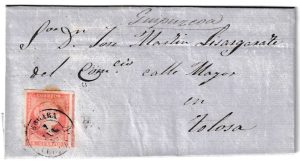 Guipuzcoa
Sor. Dn. Jose Martin Lisargarate
del Comcio calle Mayor
en
Tolosa